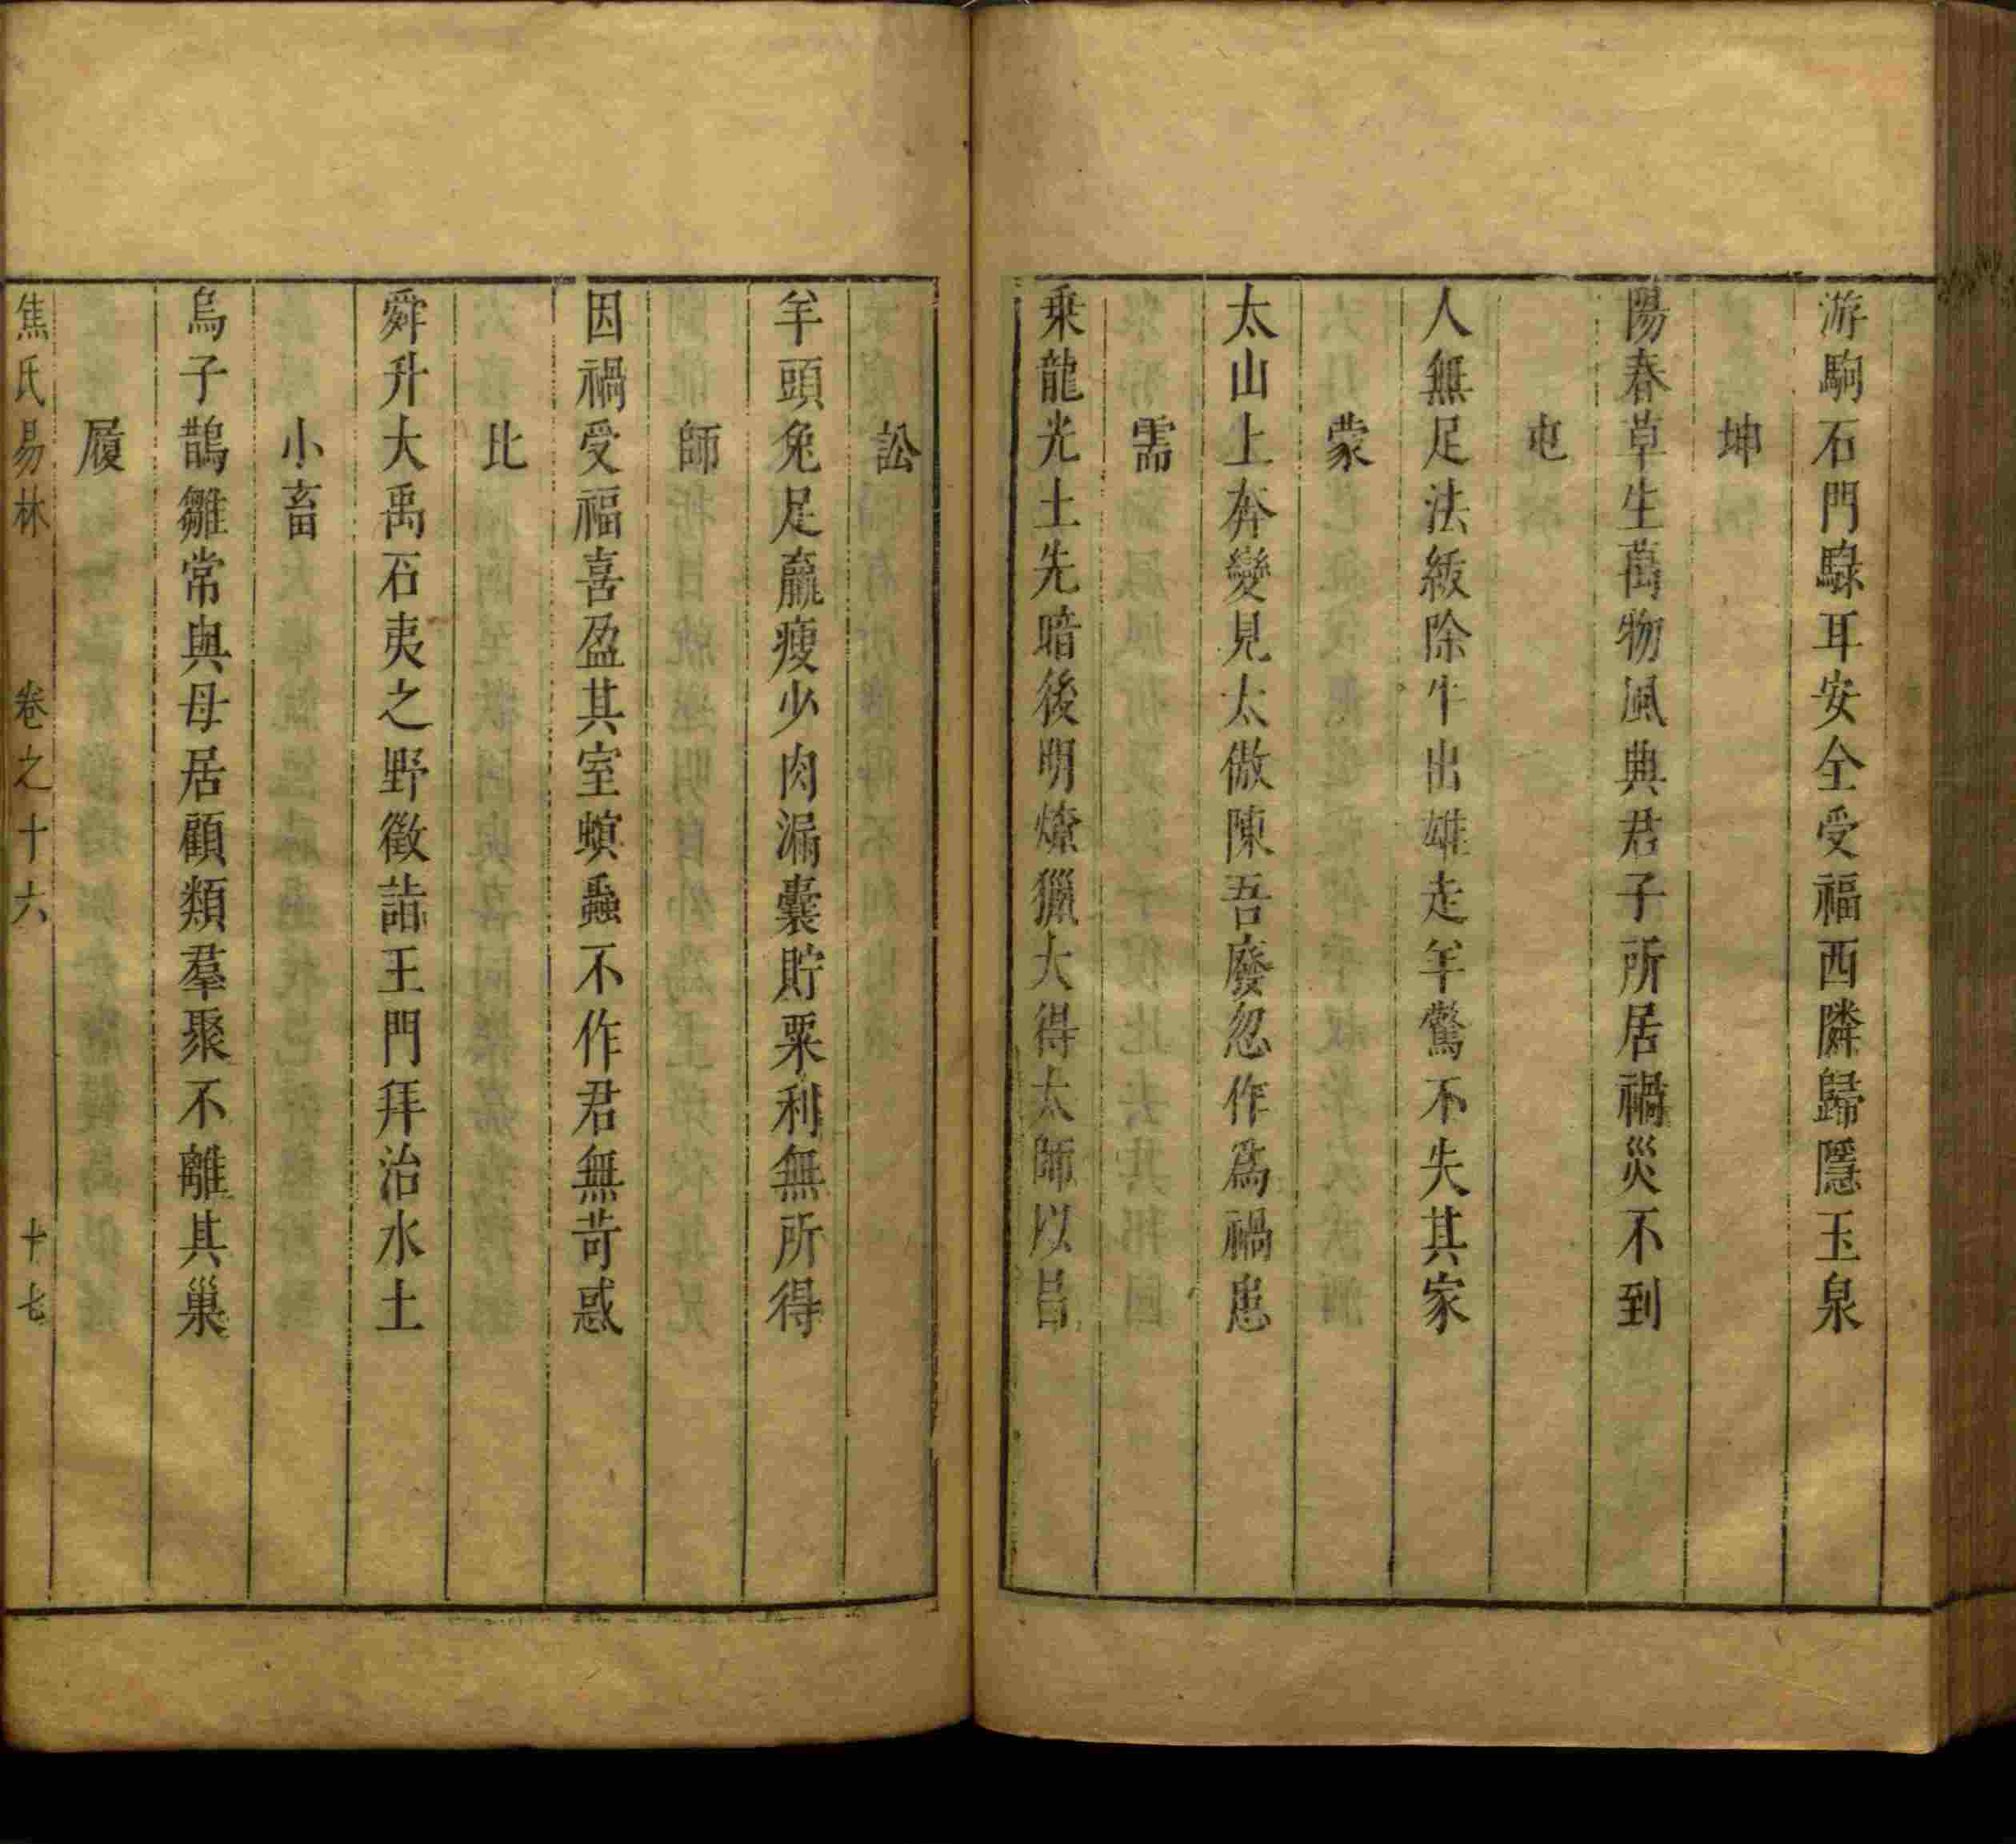 游駒石門騄耳安全受福西隣歸隱玉泉
坤
陽春草生萬物風典君子所居禍災不到
屯
人無足法緩除牛出雄走羊驚不失其家
蒙
太山上奔變見太傲陳吾廢忽作爲禍患
需
乗龍光土先暗後明燎獵大得太師以昌
訟
羊頭兔足羸瘦少肉漏囊貯粟利無所得
師
因禍受福喜盈其室螟蟲不作君無苛惑
比
舜升大禹石夷之野徵詣王門拜治水土
小畜
烏子鵲雛常與母居顧類羣聚不離其巢
履
焦氏易林 卷之十六 十七